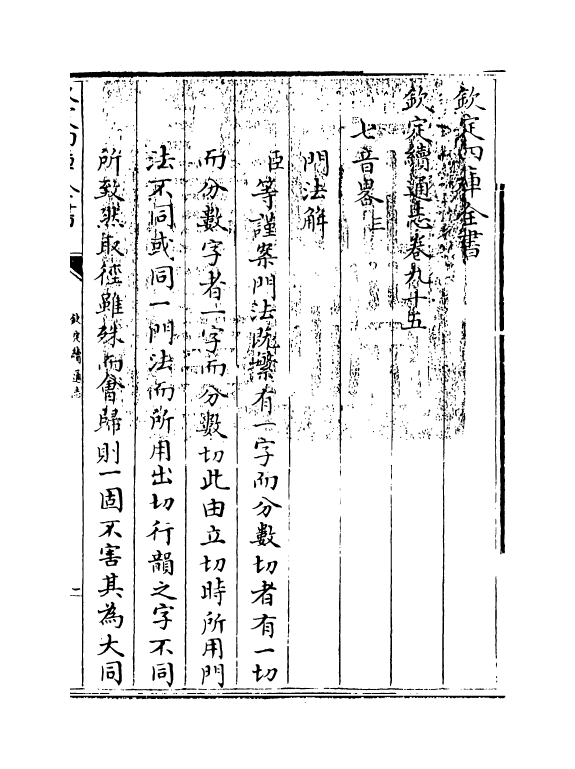 欽定四庫全書
欽定續通志卷九十五
七音畧上
門法解
臣等謹案門法既櫱有一字而分數切者有一切
而分數字者一字而分數切此由立切時所用門
法不同或同一門法而所用出切行韻之字不同
所致然取徑雖殊而會歸則一固不害其為大同
欽定續通志